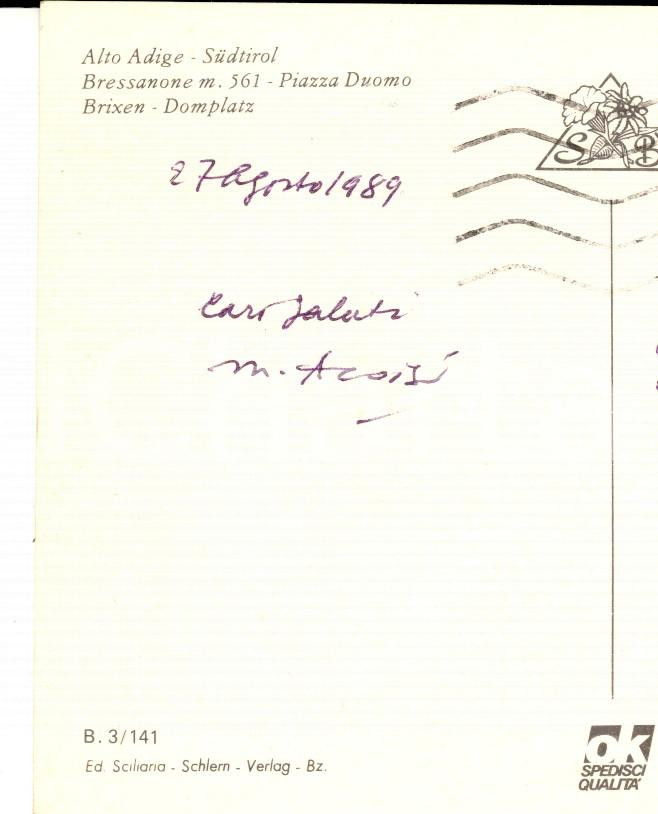 Alto Adige - Südtirol
Bressanone m. 561 - Piazza Duomo
Brixen - Domplatz
S B
27 Agosto 1989
Cari saluti
M.
B. 3/141
Ed. Sciliaria - Schlern - Verlag - Bz.
ok
SPEDISCI
QUALITÀ